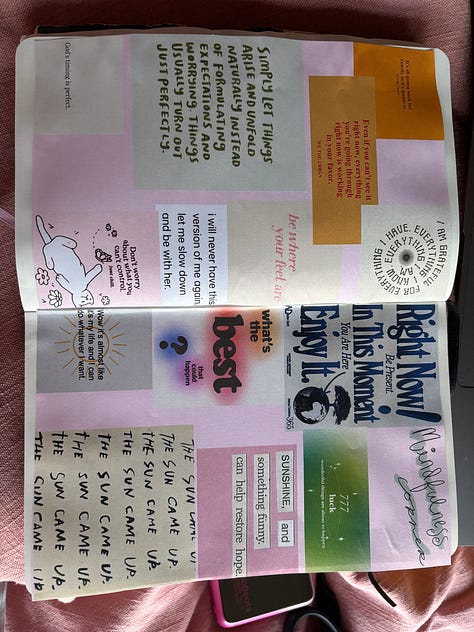 It's all gonna work out
exactly as it's meant to
Even if you can't see it
right now, everything
you're going through
right now is working
in your favor.
WE THE URBAN
SIMPLY LET THINGS
ARISE AND UNFOLD
NATURALLY INSTEAD
OF FORMULATING
EXPECTATIONS AND
WORRYING. THINGS
USUALLY TURN OUT
JUST PERFECTLY.
God's timing is perfect.
I AM GRATEFUL FOR EVERYTHING I HAVE. EVERYTHING I KNOW EVERYTHING I AM
be where
your feet are
i will never have this
version of me again
let me slow down
and be with her.
Don't worry
about what you
can't control.
Mindfulness
corner
Right Now!
Be Present.
In This Moment
You Are Here
Enjoy It.
365
777
luck
wonderful things are about to happen
what's
the
best
that
could
happen
?
SUNSHINE, and
something funny.
can help restore hope.
Wow it's almost like
it's my life and I can
do whatever I want.
THE SUN CAME UP
THE SUN CAME UP.
THE SUN CAME UP.
THE SUN CAME UP.
THE SUN CAME UP.
THE SUN CAME UP.
THE SUN CAME UP.
THE SUN CAME UP